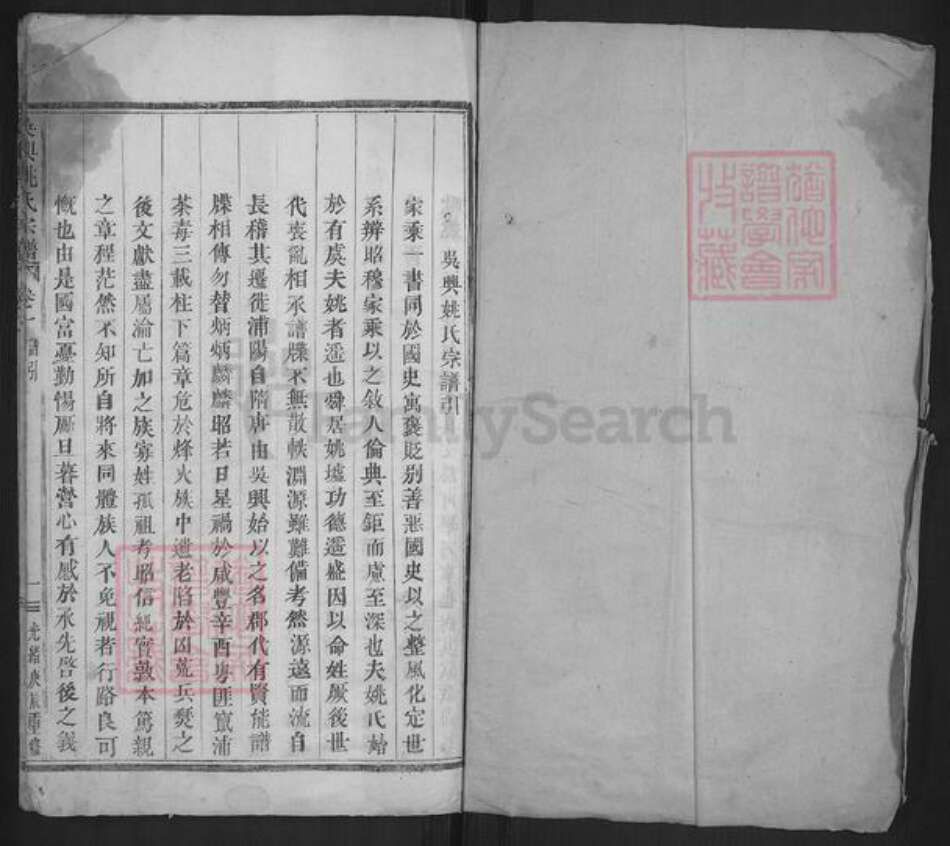 猶他家
譜學會
收藏
吳興姚氏宗譜引
家乘一書同於國史寓褒貶别善惡國史以之整風化定世
系辨昭穆家乘以之敘人倫典至鉅而慮至深也夫姚氏始
於有虞夫姚者遥也舜居姚墟功德遥盛因以命姓厥後世
代喪亂相承譜牒不無散軼淵源雖難備考然源遠而流自
長稽其遷徙浦陽自隋唐由吳興始以之名郡代有賢能譜
牒相傳勿替炳炳麟麟昭若日星禍於咸豐辛酉粤匪竄浦
荼毒三載柱下篇章危於烽火族中遺老陷於凶荒兵燹之
後文獻盡屬淪亡加之族寡姓孤祖考昭信純實敦本篤親
之章程茫然不知所自將來同體族人不免視者行路良可
慨也由是國富憂勤惕厲旦暮營心有感於承先啓後之義
吳興姚氏宗譜 卷之一 譜引 一 光緒庚辰重修
FamilySearch